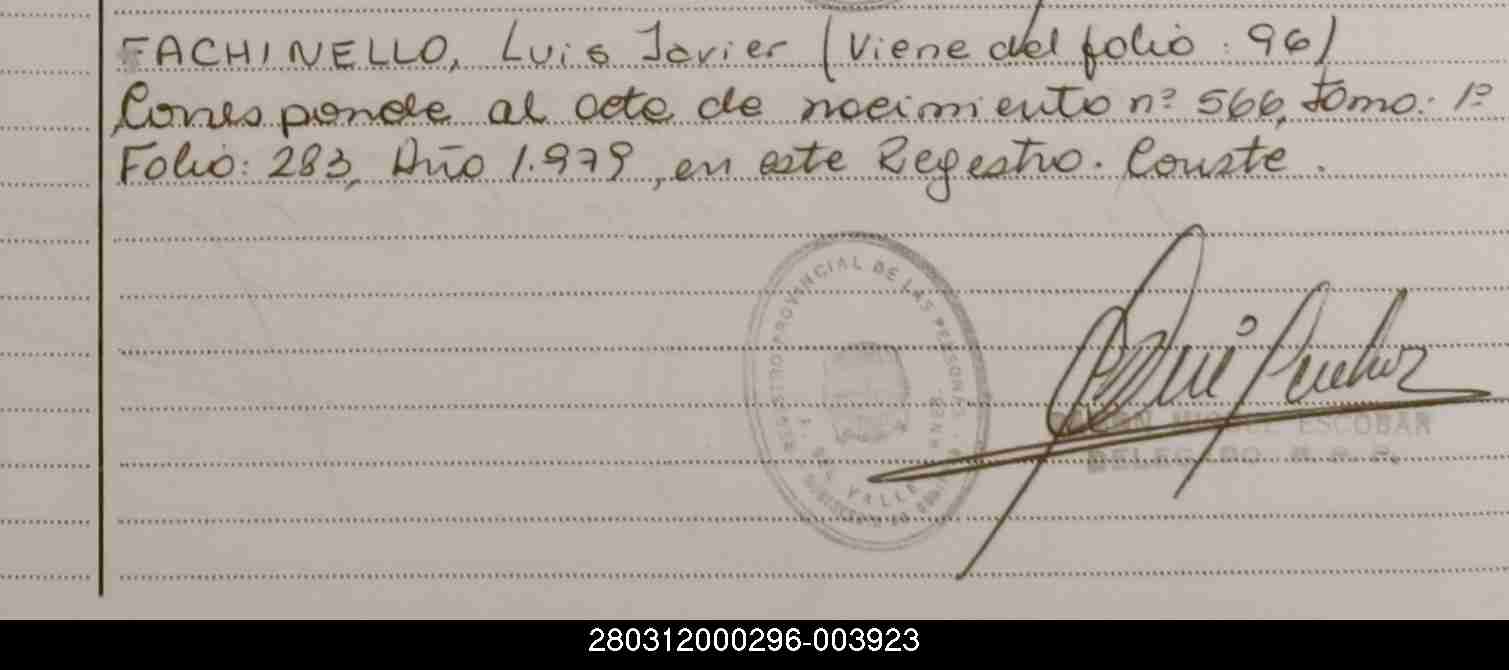 FACHINELLO, Luis Javier (Viene del folio : 96)
Corresponde al acta de nacimiento nº 566, tomo: 1º
Folio: 283, Año 1.979, en este Registro. Conste.
REGISTRO PROVINCIAL DE LAS PERSONAS
VALLE
MIGUEL ESCOBAR
DELEGADO R. C. P.
280312000296-003923